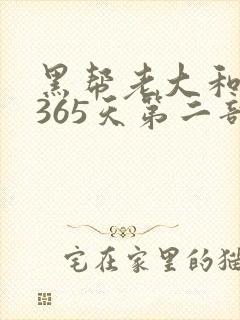 黑帮老大和
365天第二部
宅在家里的猫